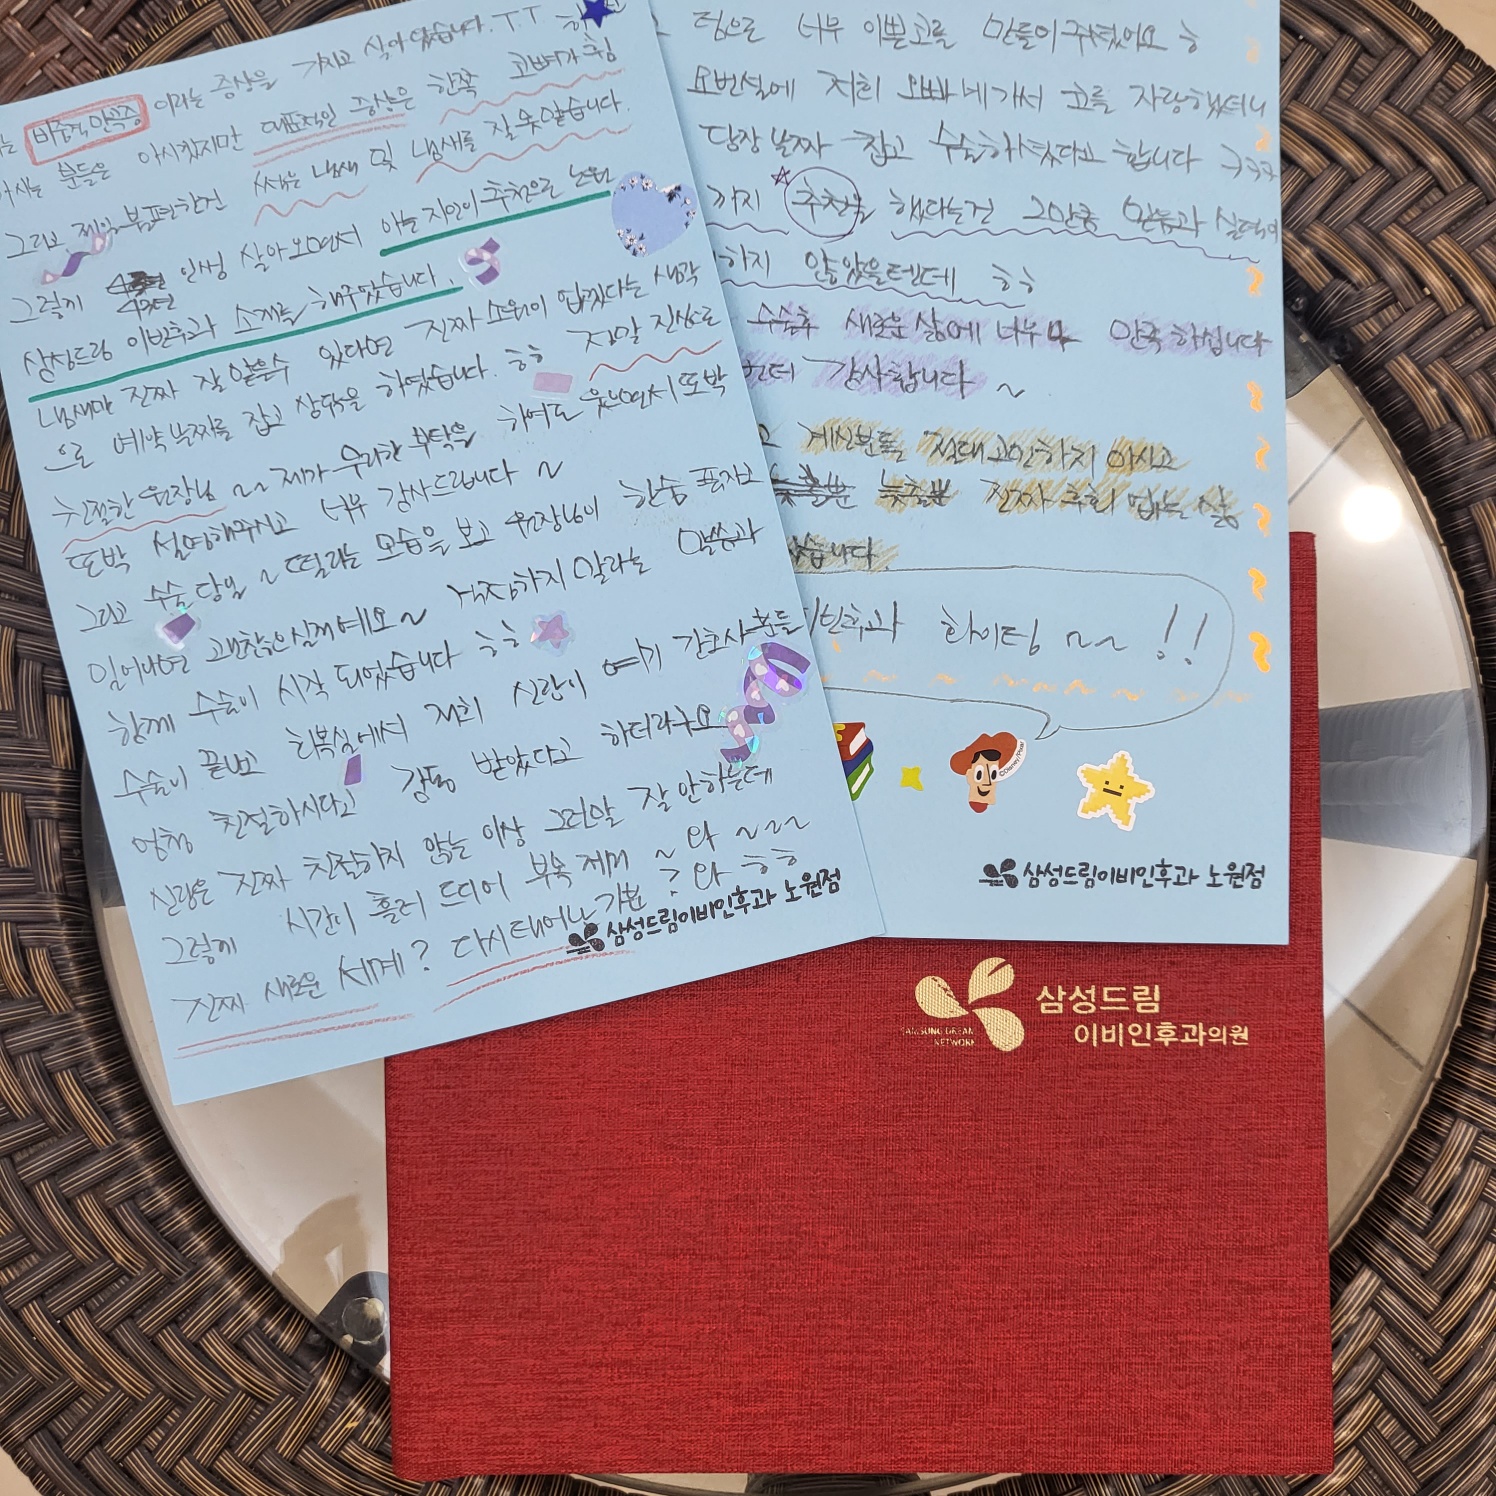 가지고 살아 왔습니다. T.T
는 비중격만곡증 이라는 증상을
아시는 분들은 아시겠지만 대표적인 증상은 한쪽 코뼈가 휨
그리고 제일 불편한건 썩은 냄새 및 냄새를 잘 못맡습니다.
그렇게 인생 살아오면서 아는 지인이 추천으로 노원
삼성드림 이빈후과 소개를 해주었습니다.
냄새만 진짜 잘 맡을수 있다면 진짜 소원이 없겠다는 생각
으로 예약날짜를 잡고 상담을 하였습니다. ㅎㅎ 정말 진심으로
친절한 원장님 ~~ 제가 무리한 부탁을 하여도 웃으면서 또박
또박 설명해주시고 너무 감사드립니다 ~
그리고 수술 당일 ~ 떨리는 모습을 보고 원장님이 한숨 푹자고
일어나면 괜찮으실꺼예요~ 걱정하지 말라는 말씀과
함께 수술이 시작 되었습니다 ㅎㅎ
수술이 끝나고 회복실에서 저희 신랑이 여기 간호사분들
엄청 친절하시다고 감동 받았다고 하더라구요
신랑은 진짜 친절하지 않는 이상 그런말 잘 안하는데
그렇게 시간이 흘러 드디어 부목 제거 ~ 와 ~~~
진짜 새로운 세계? 다시 태어난 기분? 와 ㅎㅎ
삼성드림이비인후과 노원점
덤으로 너무 이쁜코를 만들어주셨어요 ㅎ
요번설에 저희 오빠네가서 코를 자랑했더니
당장 날짜 잡고 수술하시겠다고 합니다 ㅋㅋㅋ
까지 추천을 했다는건 그만큼 믿음과 실력이
하지 않았을텐데 ㅎㅎ
수술후 새로운 삶에 너무나 만족하십니다
감사합니다 ~
고 계신분들 절대 고민하지 마시고
진짜 후회 없는 삶을
습니다
이빈후과 화이팅 ~~ !!
©Disney/Pixar
삼성드림이비인후과 노원점
삼성드림
이비인후과의원
SAMSUNG DREAM
NETWORK